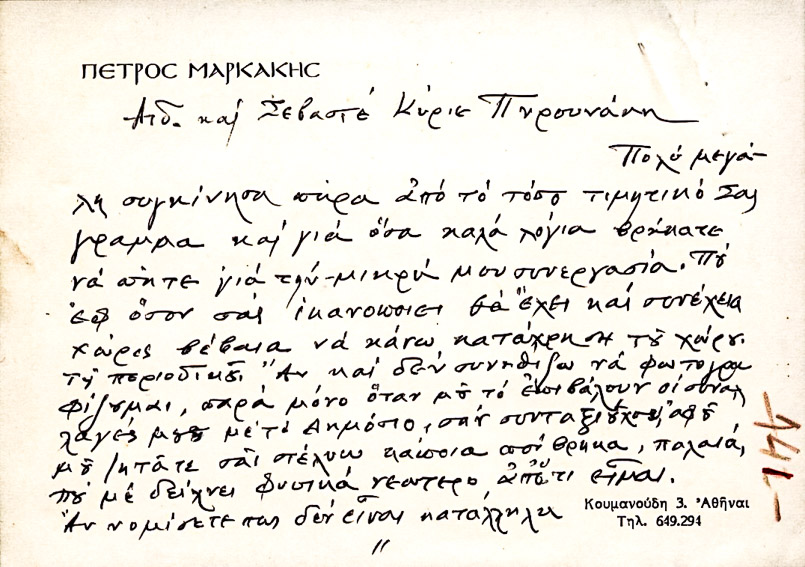 ΠΕΤΡΟΣ ΜΑΡΚΑΚΗΣ
Αιδ. καί Σεβαστέ Κύριε Πυρουνάκη
Πολύ μεγά-
λη συγκίνησα πήρα ἀπό τό τόσο τιμητικό Σας
γραμμα καί γιά ὅσα καλά λόγια βρήκατε
νά πῆτε γιά τήν μικρή μου συνεργασία. Πού
ἐφ ὅσον σᾶς ἱκανοποιεῖ θά ἔχει καί συνέχεια
χωρίς βέβαια νά κάνω κατάχρηση τοῦ χώρου
τοῦ περιοδικοῦ. Ἄν καί δέν συνηθίζω νά φωτογρα
φίζουμαι, παρά μόνο ὅταν μοῦ τό ἐπιβάλουν οἱ συναλ
λαγές μου μέ τό Δημόσιο, σάν συνταξιοῦχος, ἀφοῦ
μοῦ ζητᾶτε σᾶς στέλνω κάποια πού βρῆκα, παλαιά,
πού μέ δείχνει φυσικά νεωτερο ἀπ' ὅτι εἶμαι.
Ἄν νομίσετε πως δέν εἶναι κατάλληλη
Κουμανούδη 3. Ἀθῆναι
Τηλ. 649.294
//